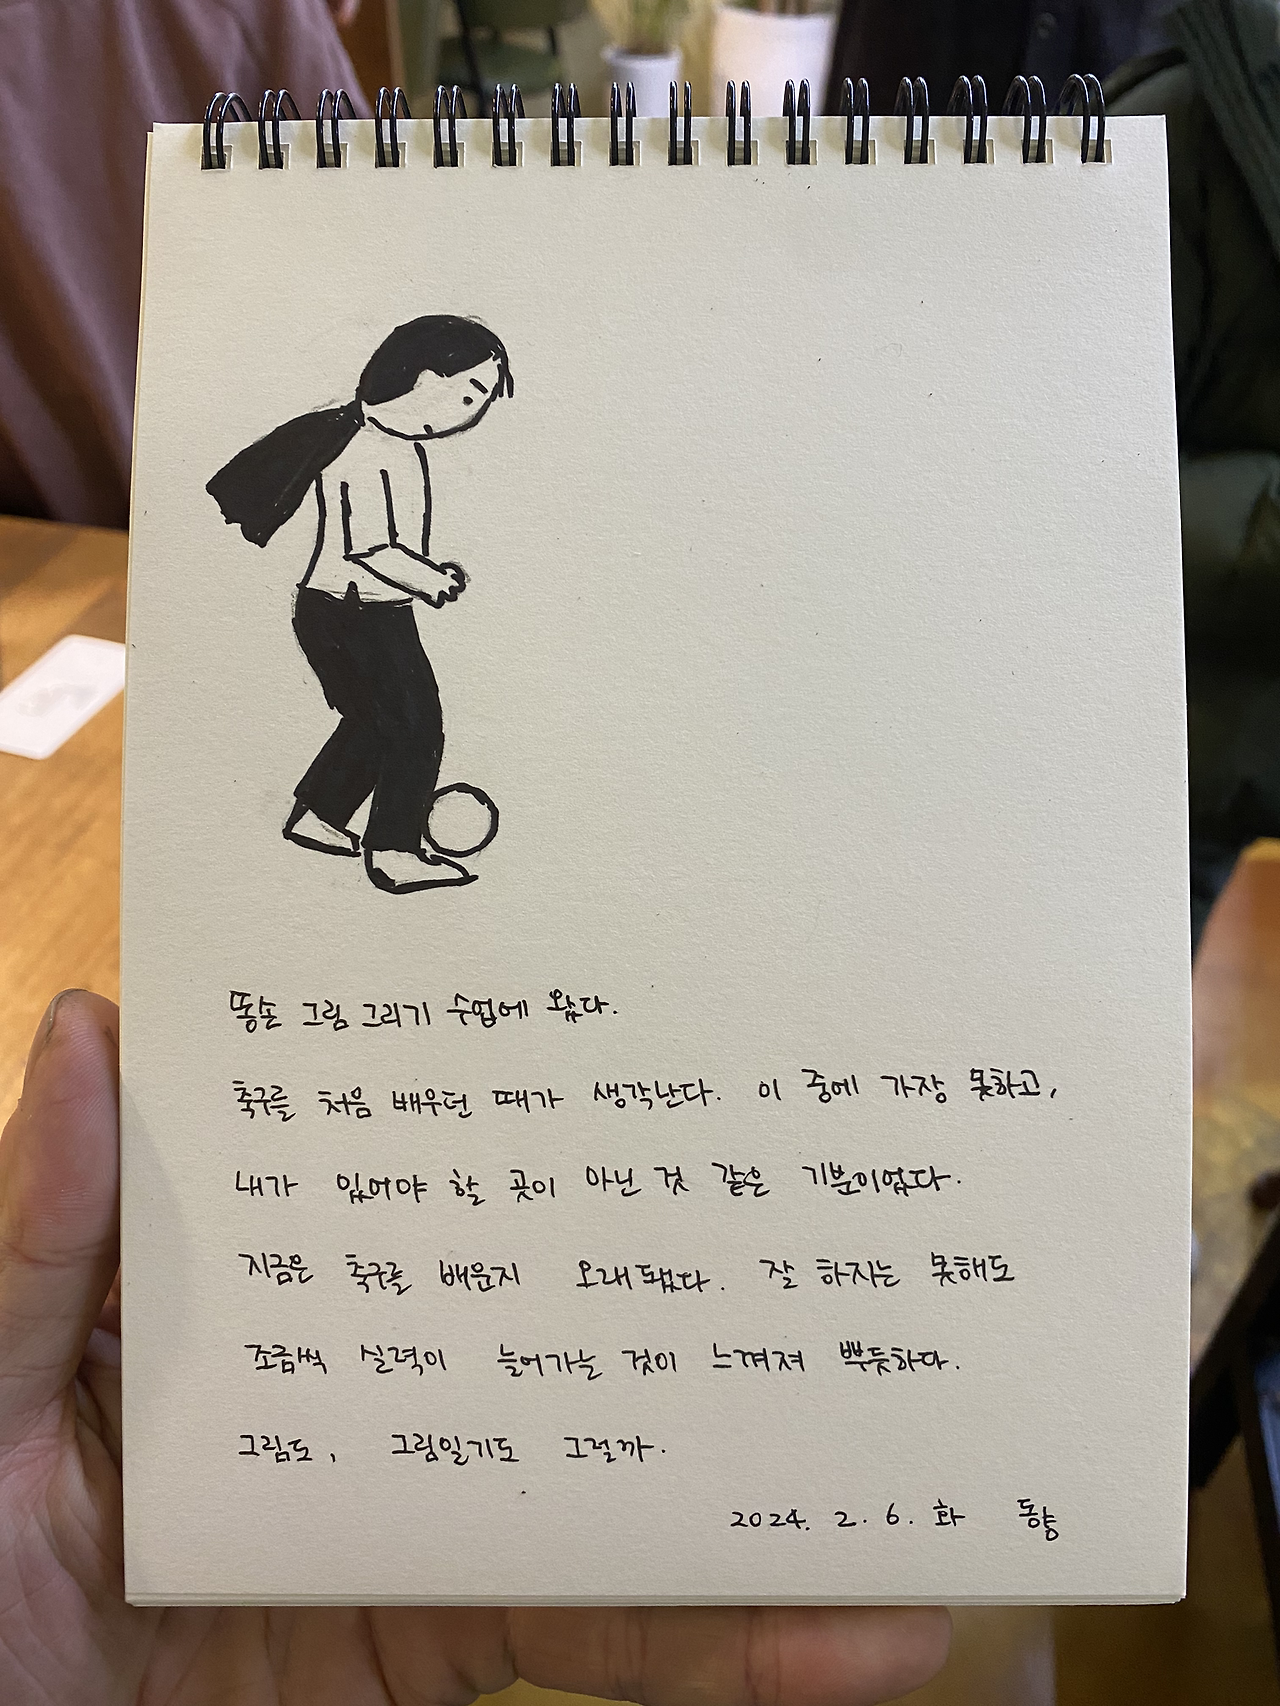 똥손 그림 그리기 수업에 왔다.
축구를 처음 배우던 때가 생각난다. 이 중에 가장 못하고,
내가 있어야 할 곳이 아닌 것 같은 기분이었다.
지금은 축구를 배운지 오래됐다. 잘 하지는 못해도
조금씩 실력이 늘어가는 것이 느껴져 뿌듯하다.
그림도, 그림일기도 그럴까.
2024. 2. 6. 화